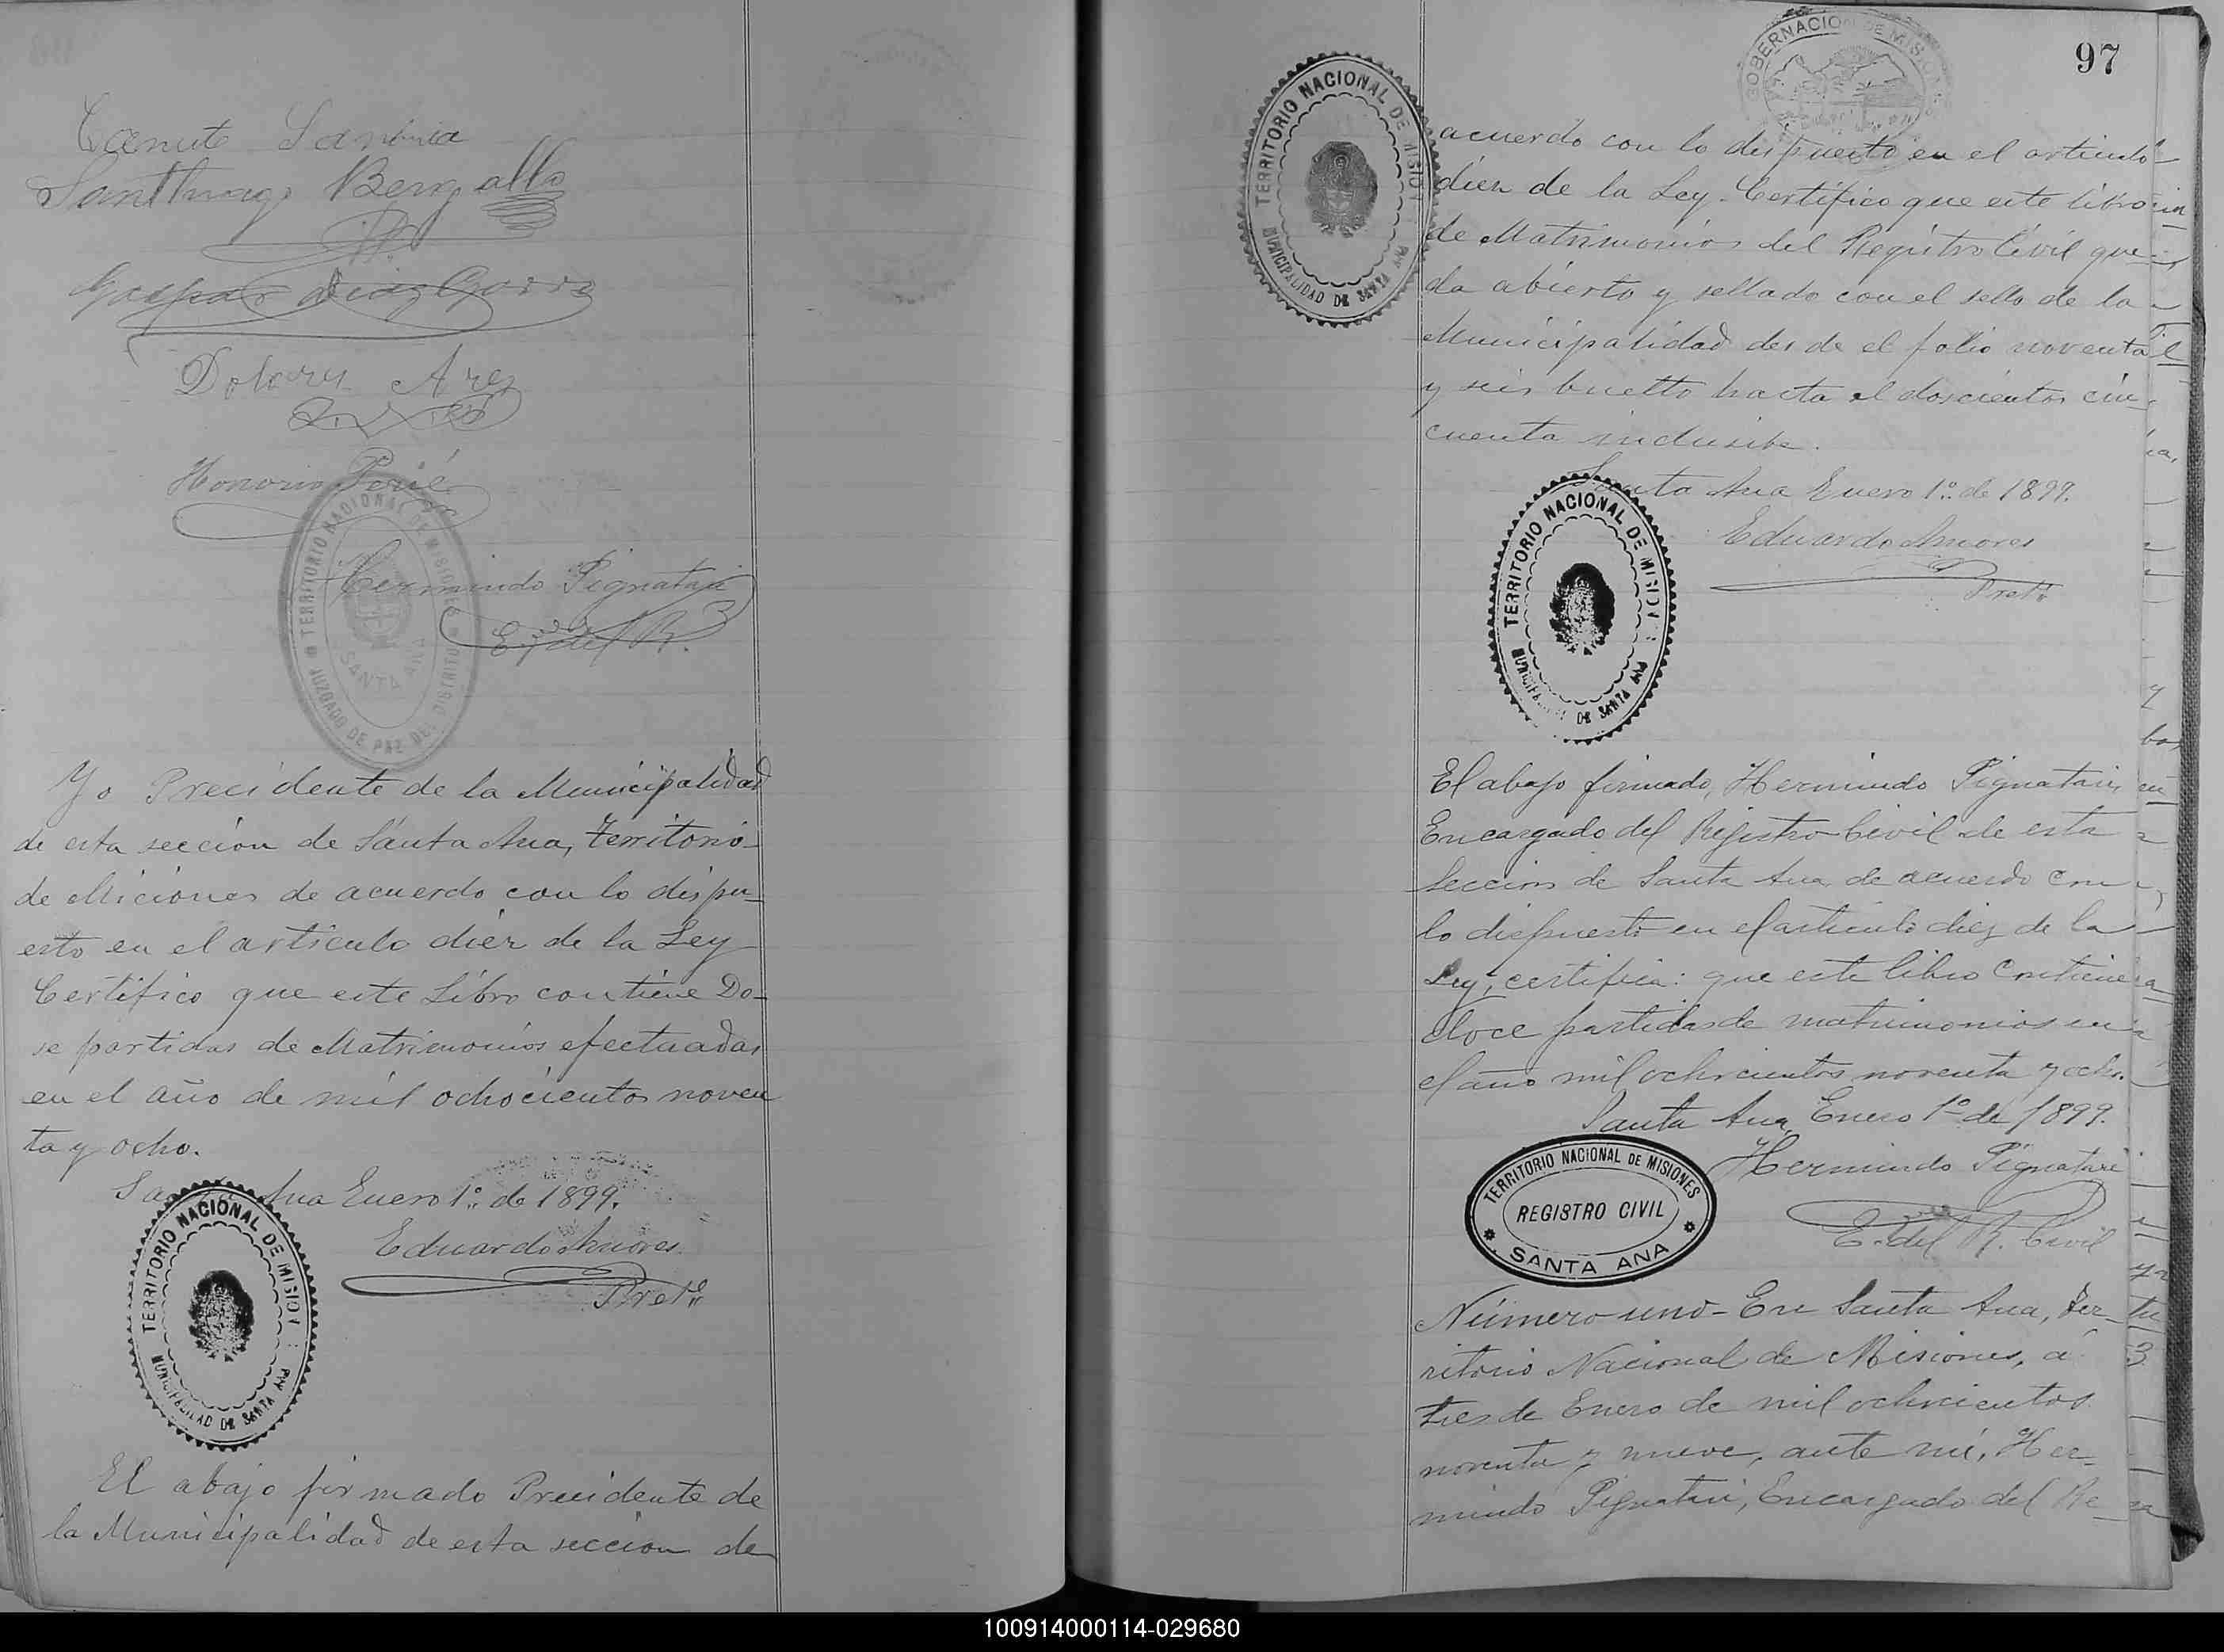 Santhiago Bergallo
Gaspar Diaz
Honorio Perié
Hermindo Pignatari
E. del R.
TERRITORIO NACIONAL DE MISIONES
JUZGADO DE PAZ DEL DISTRITO
SANTA ANA
Yo Precidente de la Municipalidad
de esta seccion de Santa Ana, territorio
de Miciones de acuerdo con lo dispu-
esto en el articulo dier de la Ley
Certifico que este Libro contiene Do-
se partidas de Matrimonios efectuadas
en el año de mil ochocientos noven
ta y ocho.
Santa Ana Enero 1º de 1899.
Eduardo
TERRITORIO NACIONAL DE MISION
MUNICIPALIDAD DE SANTA ANA
El abajo firmado Precidente de
la Municipalidad de esta seccion de
97
GOBERNACION DE MISIONES
TERRITORIO NACIONAL DE MISION
MUNICIPALIDAD DE SANTA ANA
acuerdo con lo dispuesto en el articulo
dier de la Ley. Certifico que este libro
de Matrimonios del Registro Civil que-
da abierto y sellado con el sello de la
Municipalidad desde el folio noventa
y seis buelto hacta el doscientos cin-
cuenta inclusibe.
Santa Ana Enero 1º de 1899.
Eduardo
TERRITORIO NACIONAL DE MISION
MUNICIPALIDAD DE SANTA ANA
El abajo firmado, Hermindo Pignatari,
Encargado del Registro Civil de esta
Seccion de Santa Ana, de acuerdo con
lo dispuesto en el articulo diez de la
Ley, certifica: que este libro contiene
doce partidas de matrimonios en
el año mil ochocientos noventa y ocho.
Santa Ana, Enero 1º de 1899.
Hermindo Pignatari
E. del R. Civil
TERRITORIO NACIONAL DE MISIONES
REGISTRO CIVIL
SANTA ANA
Número uno - En Santa Ana, Ter-
ritorio Nacional de Misiones, á
tres de Enero de mil ochocientos
noventa y nueve, ante mi, Her-
mindo Pignatari, Encargado del Re-
100914000114-029680